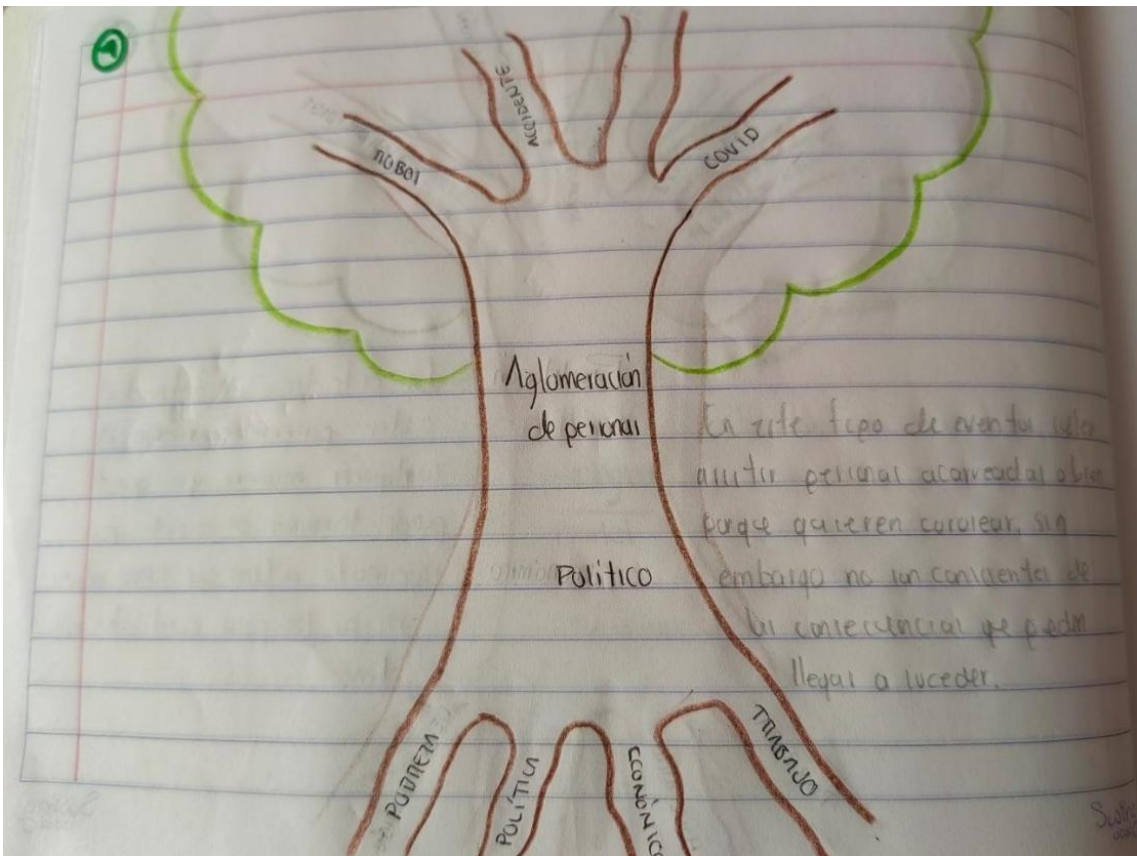 1
ACCIDENTE
ROBOS
COVID
Aglomeración
de personas
En este tipo de eventos suelen
asistir personas acarreadas o bien
porque quieren cotorrear, sin
Político
embargo no son conscientes de
las consecuencias que pueden
llegar a suceder.
POBREZA
POLÍTICA
ECONÓMICO
TRABAJO